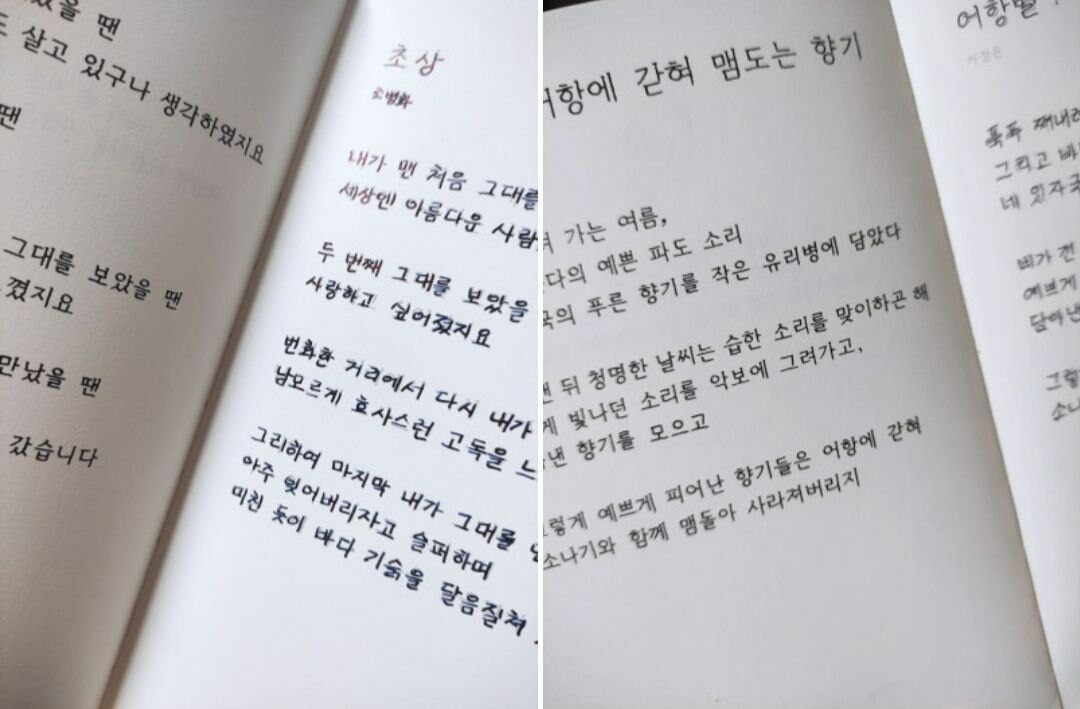 았을 땐
살고 있구나 생각하였지요
땐
그대를 보았을 땐
졌지요
만났을 땐
갔습니다
초상
조병화
내가 맨 처음 그대를
세상엔 아름다운 사람
두 번째 그대를 보았을
사랑하고 싶어졌지요
번화한 거리에서 다시 내가
남모르게 호사스런 고독을 느
그리하여 마지막 내가 그대를
아주 잊어버리자고 슬퍼하며
미친 듯이 바다 기슭을 달음질쳐
어항에 갇혀 맴도는 향기
가는 여름,
바다의 예쁜 파도 소리
푸른 향기를 작은 유리병에 담았다
뒤 청명한 날씨는 습한 소리를 맞이하곤 해
빛나던 소리를 악보에 그려가고,
낸 향기를 모으고
그렇게 예쁘게 피어난 향기들은 어항에 갇혀
소나기와 함께 맴돌아 사라져버리지
어항
푹푹 쪄내려
그리고 바
네 잎자국
비가 건
예쁘게
담아낸
그렇
소나